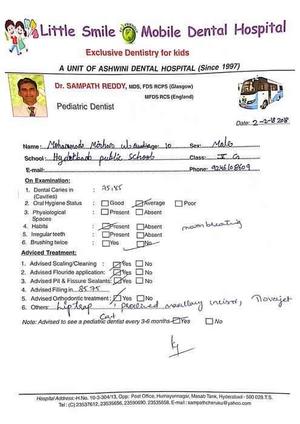 Little Smile Mobile Dental Hospital
Exclusive Dentistry for kids
A UNIT OF ASHWINI DENTAL HOSPITAL (Since 1997)
Dr. SAMPATH REDDY, MDS, FDS RCPS (Glasgow)
MFDS RCS (England)
Pediatric Dentist
Date: 2-2-18
Name: Mohammed Age: 10 Sex: Male
School: Hyderabad public school Class:
E-mail: Phone:
On Examination:
1. Dental Caries in (Cavities) : 75,85
2. Oral Hygiene Status : Good Average Poor
3. Physiological Spaces : Present Absent
4. Habits : Present Absent mouth breathing
5. Irregular teeth : Present Absent
6. Brushing twice : Yes No
Adviced Treatment:
1. Advised Scaling/Cleaning : Yes No
2. Advised Flouride application: Yes No
3. Advised Pit & Fissure Sealants: Yes No
4. Advised Filling in 85,75
5. Advised Orthodontic treatment : Yes No
6. Others: maxillary incisor,
Note: Advised to see a pediatric dentist every 3-6 months Yes No
Hospital Address:-H.No. 10-3-304/13, Opp: Post Office, Humayunnagar, Masab Tank, Hyderabad - 500 028 T.S.
Tel : (C) 23537612, 23535656, 23590690, 23535658, E-mail : sampathchiruku@yahoo.com